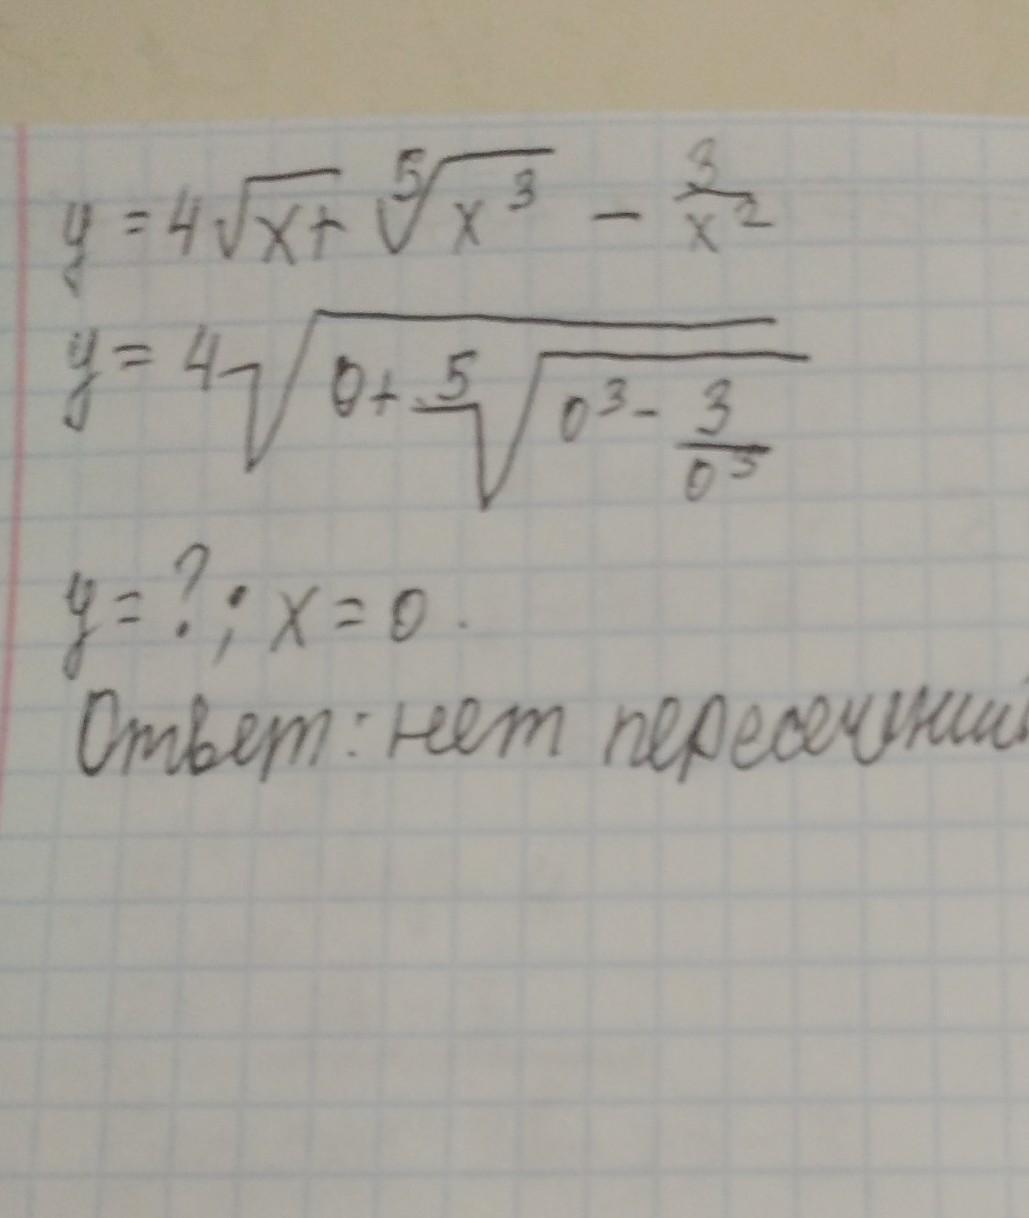 y = 4√x + ⁵√x³ − 3/x²
y = 4√(0 + ⁵√(0³ − 3/0³))
y = ? ; x = 0.
Ответ: нет пересечений